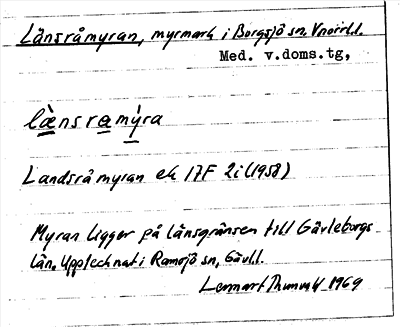 Länsråmyran, myrmark i Borgsjö sn, Vnorrl.
Med. v.doms.tg,
lænsramýra
Landsråmyran ek 17F 2i (1958)
Myran ligger på länsgränsen till Gävleborgs
län. Upptecknat i Ramsjö sn, Gävl.l.
Lennart 1969